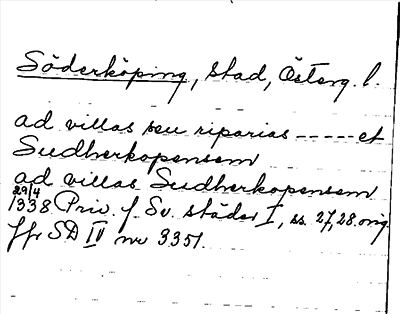 Söderköping, stad, Österg. l.
ad villas seu riparias ----- et
Sudherkopensem
ad villas Sudherkopensem
29/4
1338 Priv. f. Sv. städer I, ss. 27, 28. orig
ffr SD IV nr 3351.